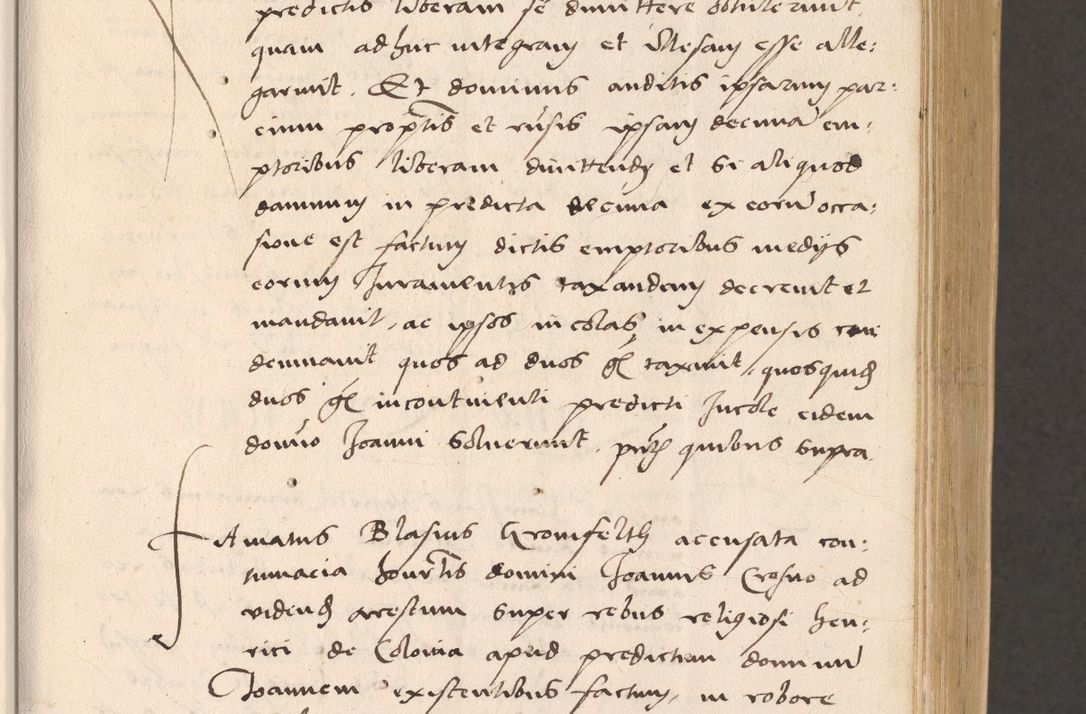 predictis liberam se dimittere obtulerunt
quam adhuc integram et illesam esse alle:
garunt. Et dominus auditis ipsarum par:
cium propoitis et rusis ipsam decima em:
ptoribus liberam dimittend et si aliquod
damnum in predicta decima ex eorum occa:
sione est factum dictis emptoribus medys
eorum Juramentis taxandam decrevit et
mandavit, ac ipsos incolas in expensis con
demnavit quos ad duos gl taxavit, quosquid
duos gl incontinenti predicti Incole eidem
domino Joanni solverunt. pntibus quibus supra
Amatus Blasius Gromfelth accusata con:
tumacia honorabilis domini Joannis Crosno ad
videnh arrestum super rebus religiosi hen:
rici de Colonia apud predictum dominum
Joannem existentibus factum, in robore